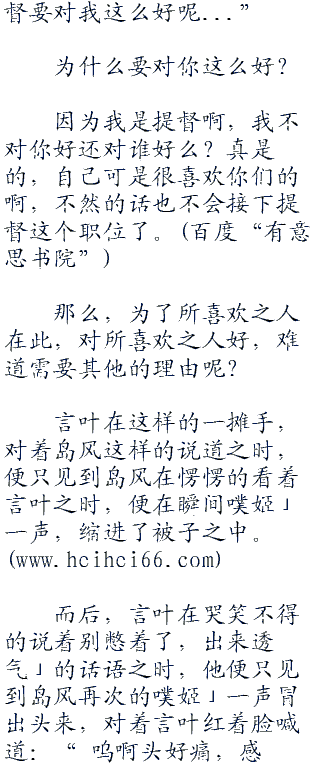 督要对我这么好呢...”
为什么要对你这么好?
因为我是提督啊, 我不
对你好还对谁好么? 真是
的, 自己可是很喜欢你们的
啊, 不然的话也不会接下提
督这个职位了。(百度“有意
思书院”)
那么, 为了所喜欢之人
在此, 对所喜欢之人好, 难
道需要其他的理由呢?
言叶在这样的一摊手,
对着岛风这样的说道之时,
便只见到岛风在愣愣的看着
言叶之时, 便在瞬间噗姬」
一声, 缩进了被子之中。
(www.hcihci66.com)
而后, 言叶在哭笑不得
的说着别憋着了, 出来透
气」的话语之时, 他便只见
到岛风再次的噗姬」一声冒
出头来, 对着言叶红着脸喊
道: “ 呜啊头好痛, 感